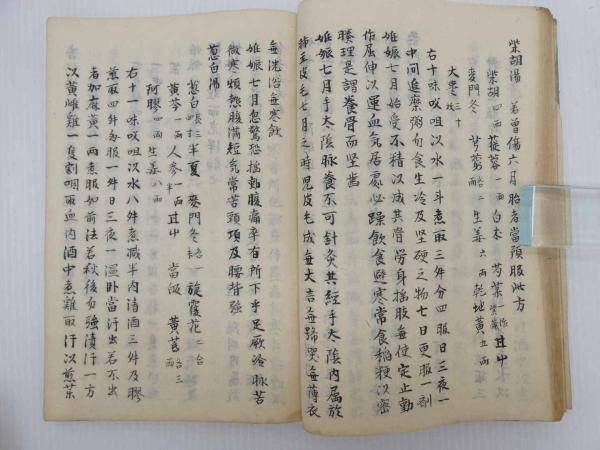 柴胡湯 若曾傷六月胎者當預服此方
柴胡四兩 蓯蓉一兩 白朮 芍藥 甘艸
麥門冬 芎藭 二 生姜六兩 乾地黃五兩
大棗三十
右十味㕮咀以水一斗煮取三升分四服日三夜一
中間進糜粥勿食生冷及坚硬之物七日更服一劑
妊娠七月始受木精以成其骨勞身揺肢無使定止動
作屈伸以運血氣居處必躁飲食避寒常食稲粳以密
腠理是謂養骨而坚齒
妊娠七月手太陰脉養不可針灸其經手太陰内属於
肺主皮毛七月之時兒皮毛成無大言無號哭無薄衣
無洗浴無寒飲
妊娠七月忽驚恐揺動腹痛卒有所下手足厥冷脉若
傷寒煩熱腹満短氣常苦頸項及腰背强
葱白湯
葱白 半夏 麥門冬 旋覆花
黃芩一兩 人參 甘艸 當皈 黃芪
阿膠四兩 生姜八兩
右十一味㕮咀以水八升煮減半内清酒三升及膠
煎取四升每服一升日三夜一温卧當汗出若不出
者加麻黃一兩煮服如前法若秋後勿强漬汗一方
以黃雌雞一隻割咽取血内酒中煮雞取汁以煎藥